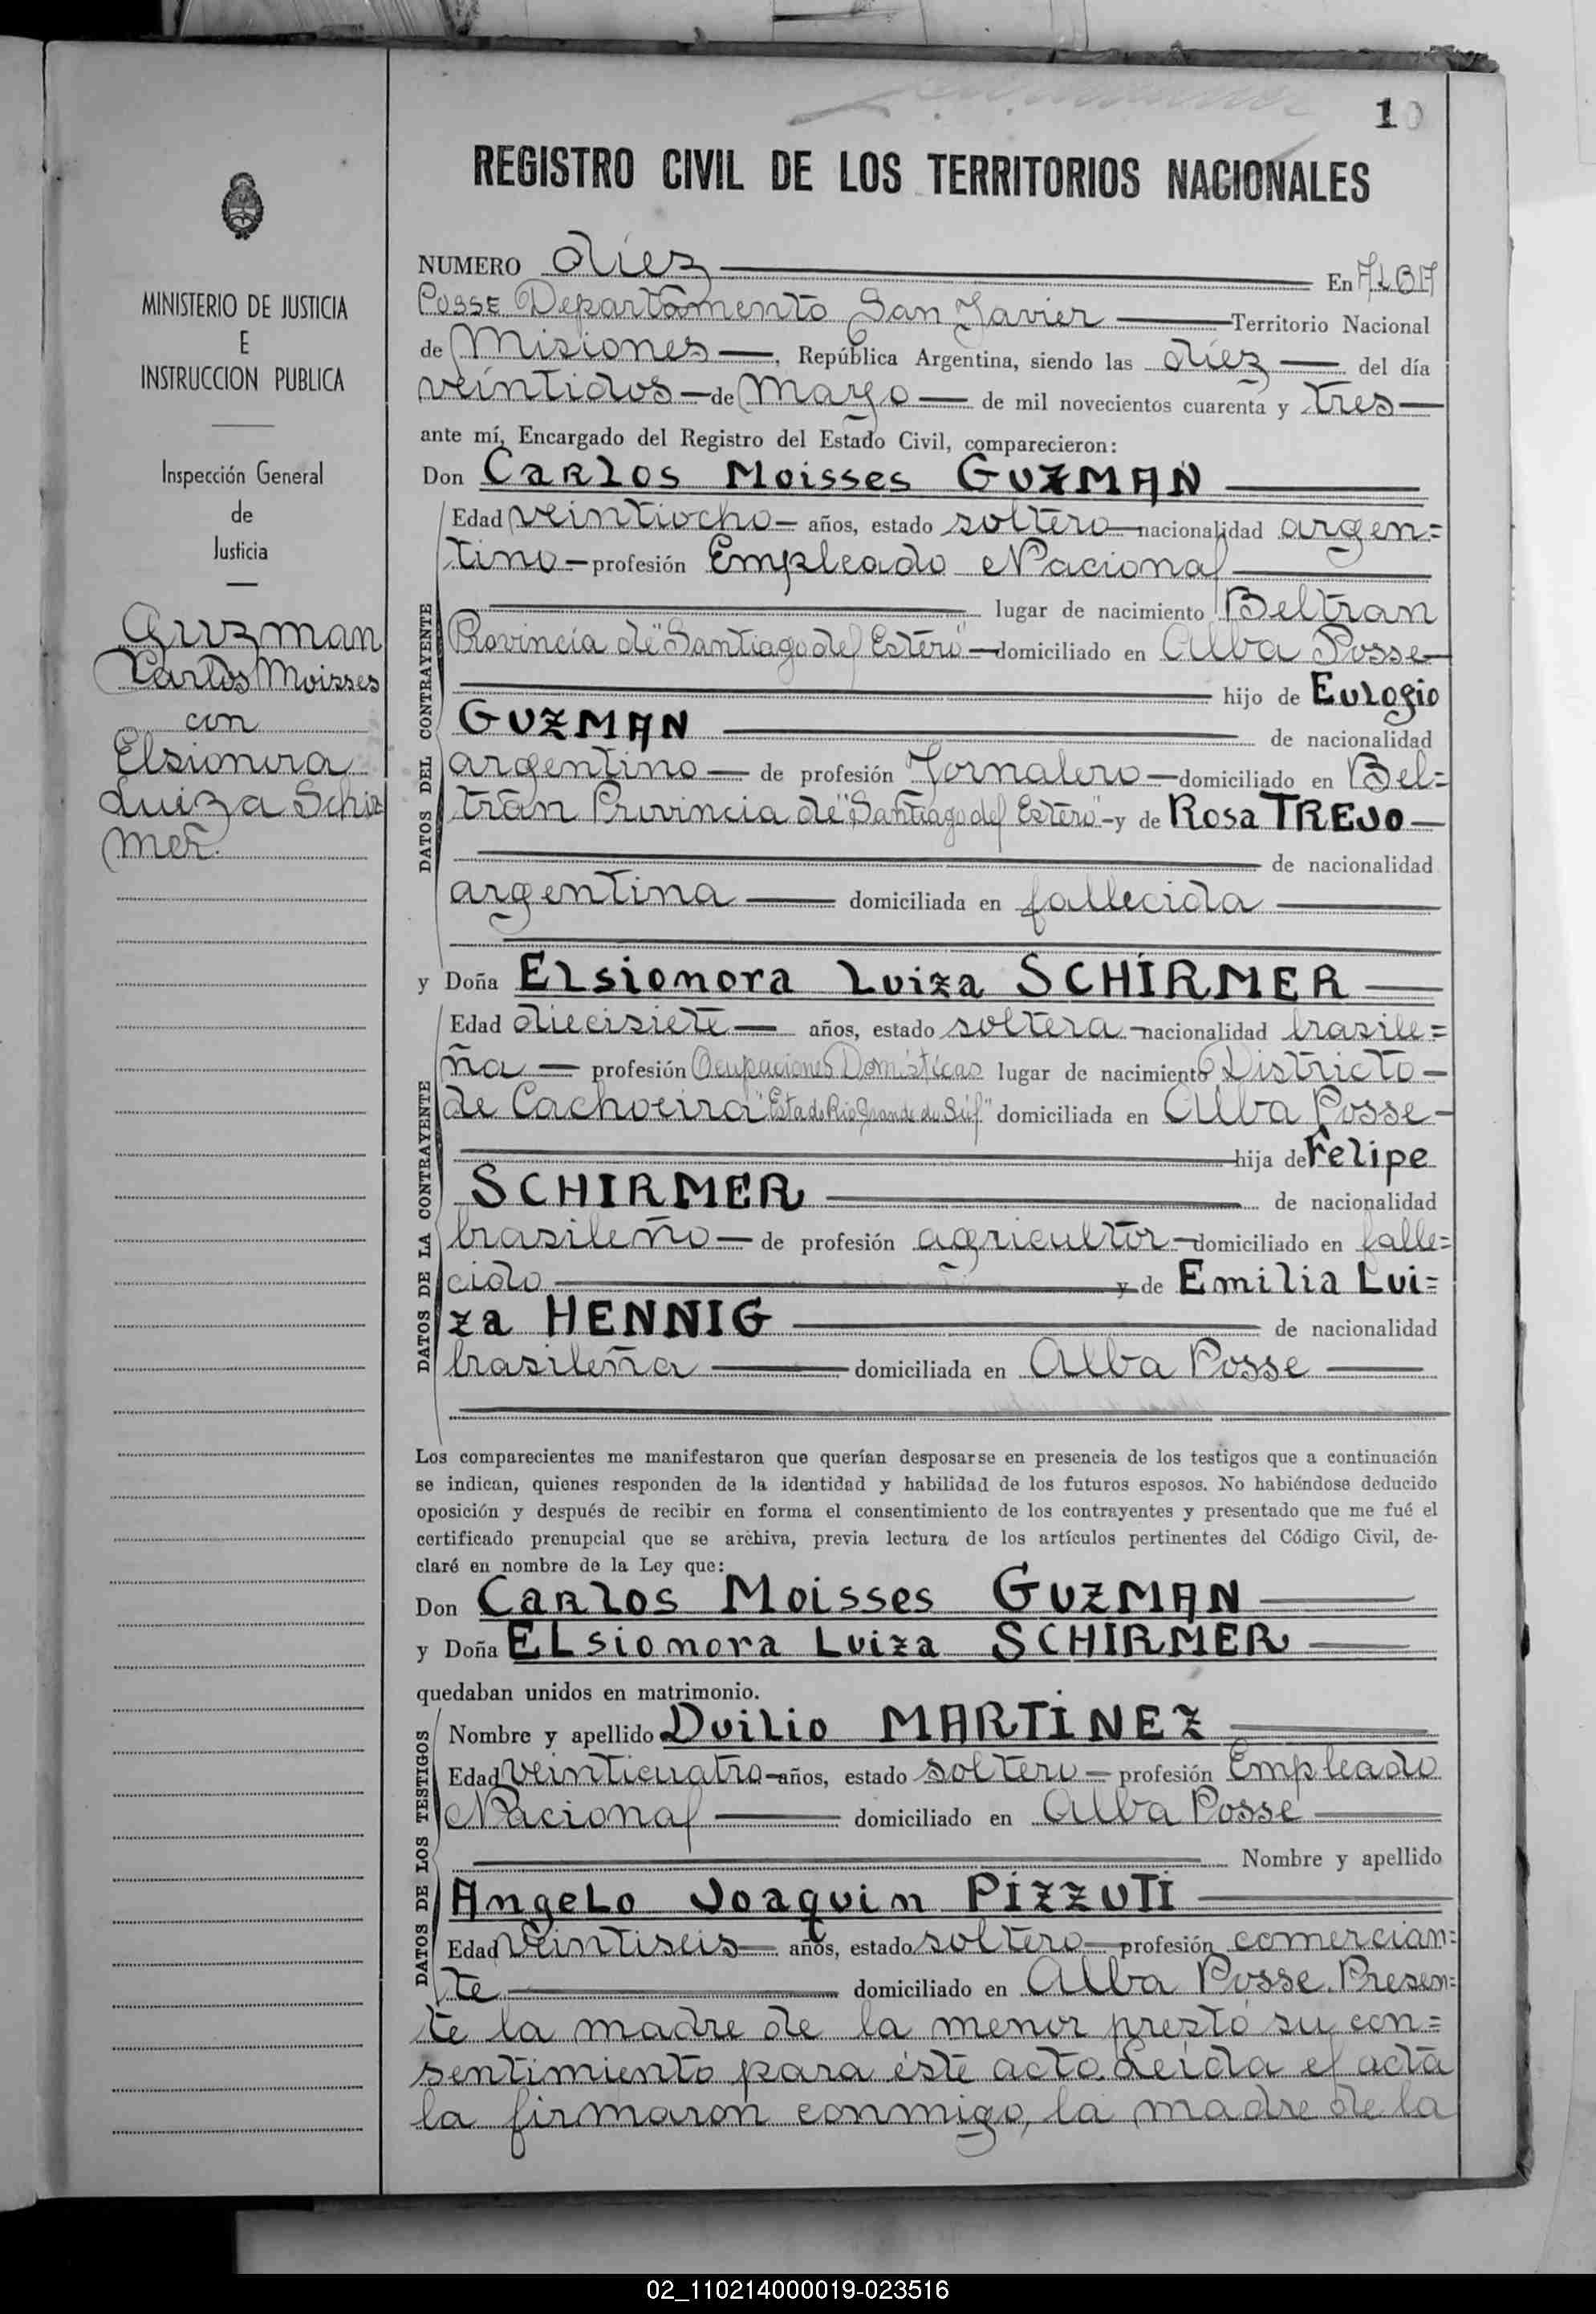 10
REGISTRO CIVIL DE LOS TERRITORIOS NACIONALES
MINISTERIO DE JUSTICIA
E
INSTRUCCION PUBLICA
Inspección General
de
Justicia
Guzman
Carlos Moisses
con
Elsionora
Luiza Schir
mer.
NUMERO diez En ALBA
POSSE Departamento San Javier Territorio Nacional
de Misiones, República Argentina, siendo las diez del día
veintidos de Mayo de mil novecientos cuarenta y tres
ante mí, Encargado del Registro del Estado Civil, comparecieron:
Don Carlos Moisses GUZMAN
DATOS DEL CONTRAYENTE
Edad veintiocho años, estado soltero nacionalidad argen=
tino profesión Empleado Nacional
lugar de nacimiento Beltran
Provincia de "Santiago del Estero" domiciliado en Alba Posse
hijo de Eulogio
GUZMAN de nacionalidad
argentino de profesión Jornalero domiciliado en Bel=
trán Provincia de "Santiago del Estero" y de Rosa TREJO
de nacionalidad
argentina domiciliada en fallecida
y Doña Elsionora Luiza SCHIRMER
DATOS DE LA CONTRAYENTE
Edad diecisiete años, estado soltera nacionalidad brasile=
ña profesión Ocupaciones Domésticas lugar de nacimiento Districto
de Cachoeira "Estado Rio Grande du Súl" domiciliada en Alba Posse
hija de Felipe
SCHIRMER de nacionalidad
brasileño de profesión agricultor domiciliado en falle=
cido y de Emilia Lui=
za HENNIG de nacionalidad
brasileña domiciliada en Alba Posse
Los comparecientes me manifestaron que querían desposarse en presencia de los testigos que a continuación
se indican, quienes responden de la identidad y habilidad de los futuros esposos. No habiéndose deducido
oposición y después de recibir en forma el consentimiento de los contrayentes y presentado que me fué el
certificado prenupcial que se archiva, previa lectura de los artículos pertinentes del Código Civil, de-
claré en nombre de la Ley que:
Don Carlos Moisses GUZMAN
y Doña Elsionora Luiza SCHIRMER
quedaban unidos en matrimonio.
DATOS DE LOS TESTIGOS
Nombre y apellido Duilio MARTINEZ
Edad veinticuatro años, estado soltero profesión Empleado
Nacional domiciliado en Alba Posse
Nombre y apellido
Angelo Joaquin PIZZUTI
Edad veintiseis años, estado soltero profesión comercian=
te domiciliado en Alba Posse. Presen=
te la madre de la menor prestó su con=
sentimiento para éste acto. Leída el acta
la firmaron conmigo, la madre de la
02_110214000019-023516